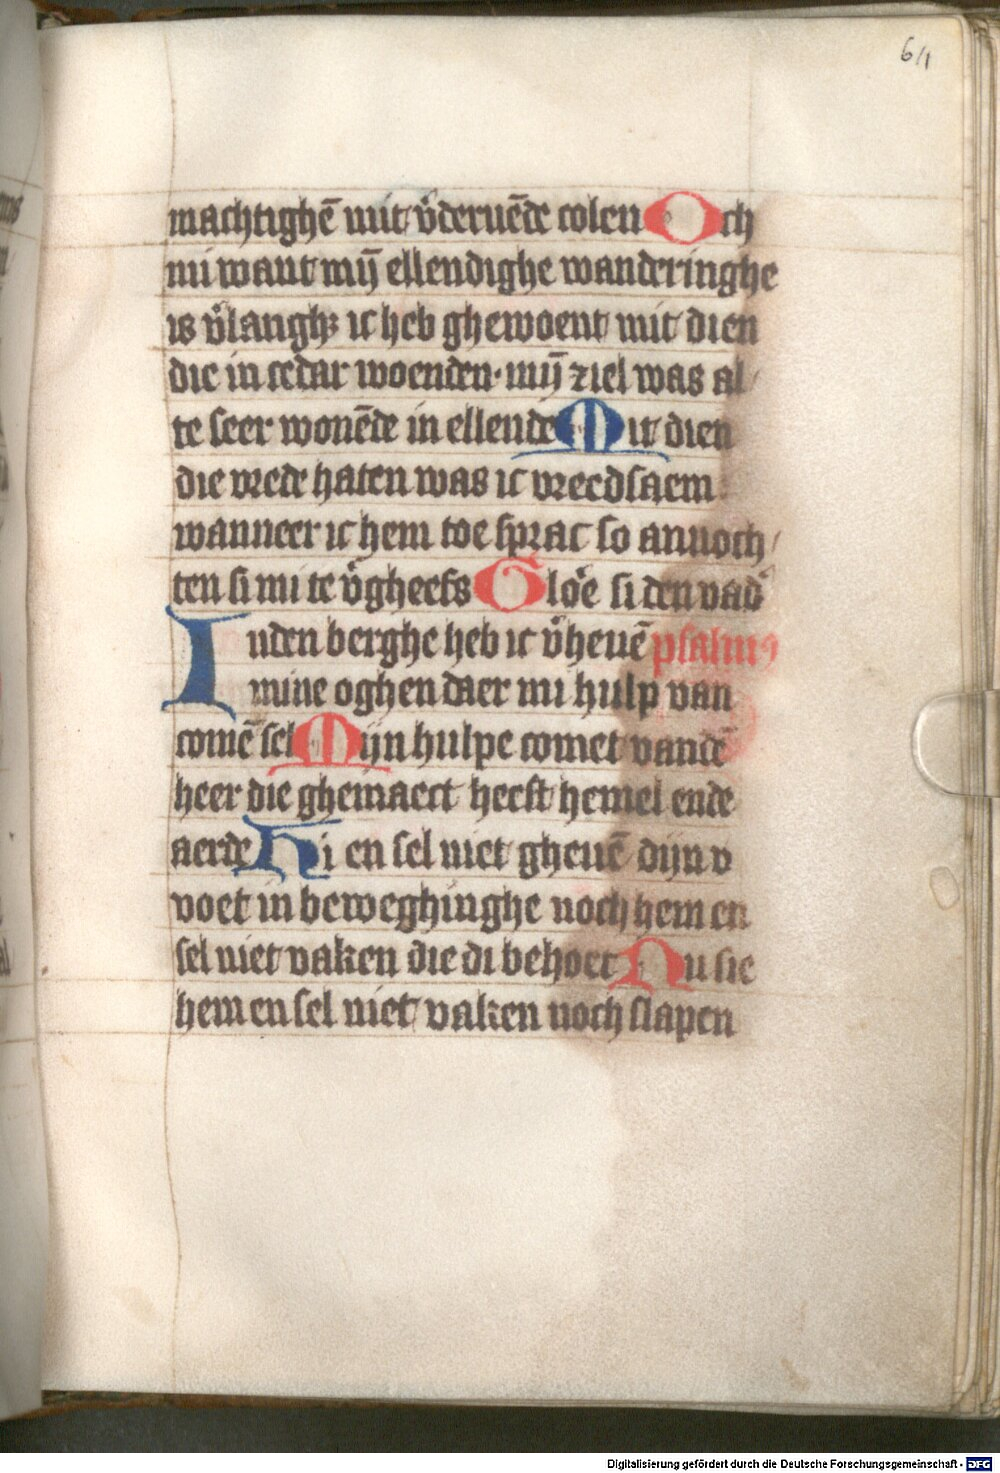 64
machtighē mit v̉deruēde colen Och
mi want mȳ ellendighe wanderinghe
is v̉langhꝫ ic heb ghewoent mit dien
die in cedar woenden· mȳ ziel was al
te seer wonēde in ellende Mit dien
die vrede haten was ic vreedsaem
wanneer ic hem toe sprac so anuoch
ten si mi te v̉gheefs Glo̓e si den vad̓
Inden berghe heb ic v̉heuē psalmꝰ
mine oghen daer mi hulp van
comē sel Mijn hulpe comet vandē
heer die ghemaect heeft hemel ende
aerde Hi en sel niet gheuē dijn v
voet in beweghinghe noch hem en
sel niet vaken die di behoet Nu sie
hem en sel niet vaken noch slapen
Digitalisierung gefördert durch die Deutsche Forschungsgemeinschaft - DFG